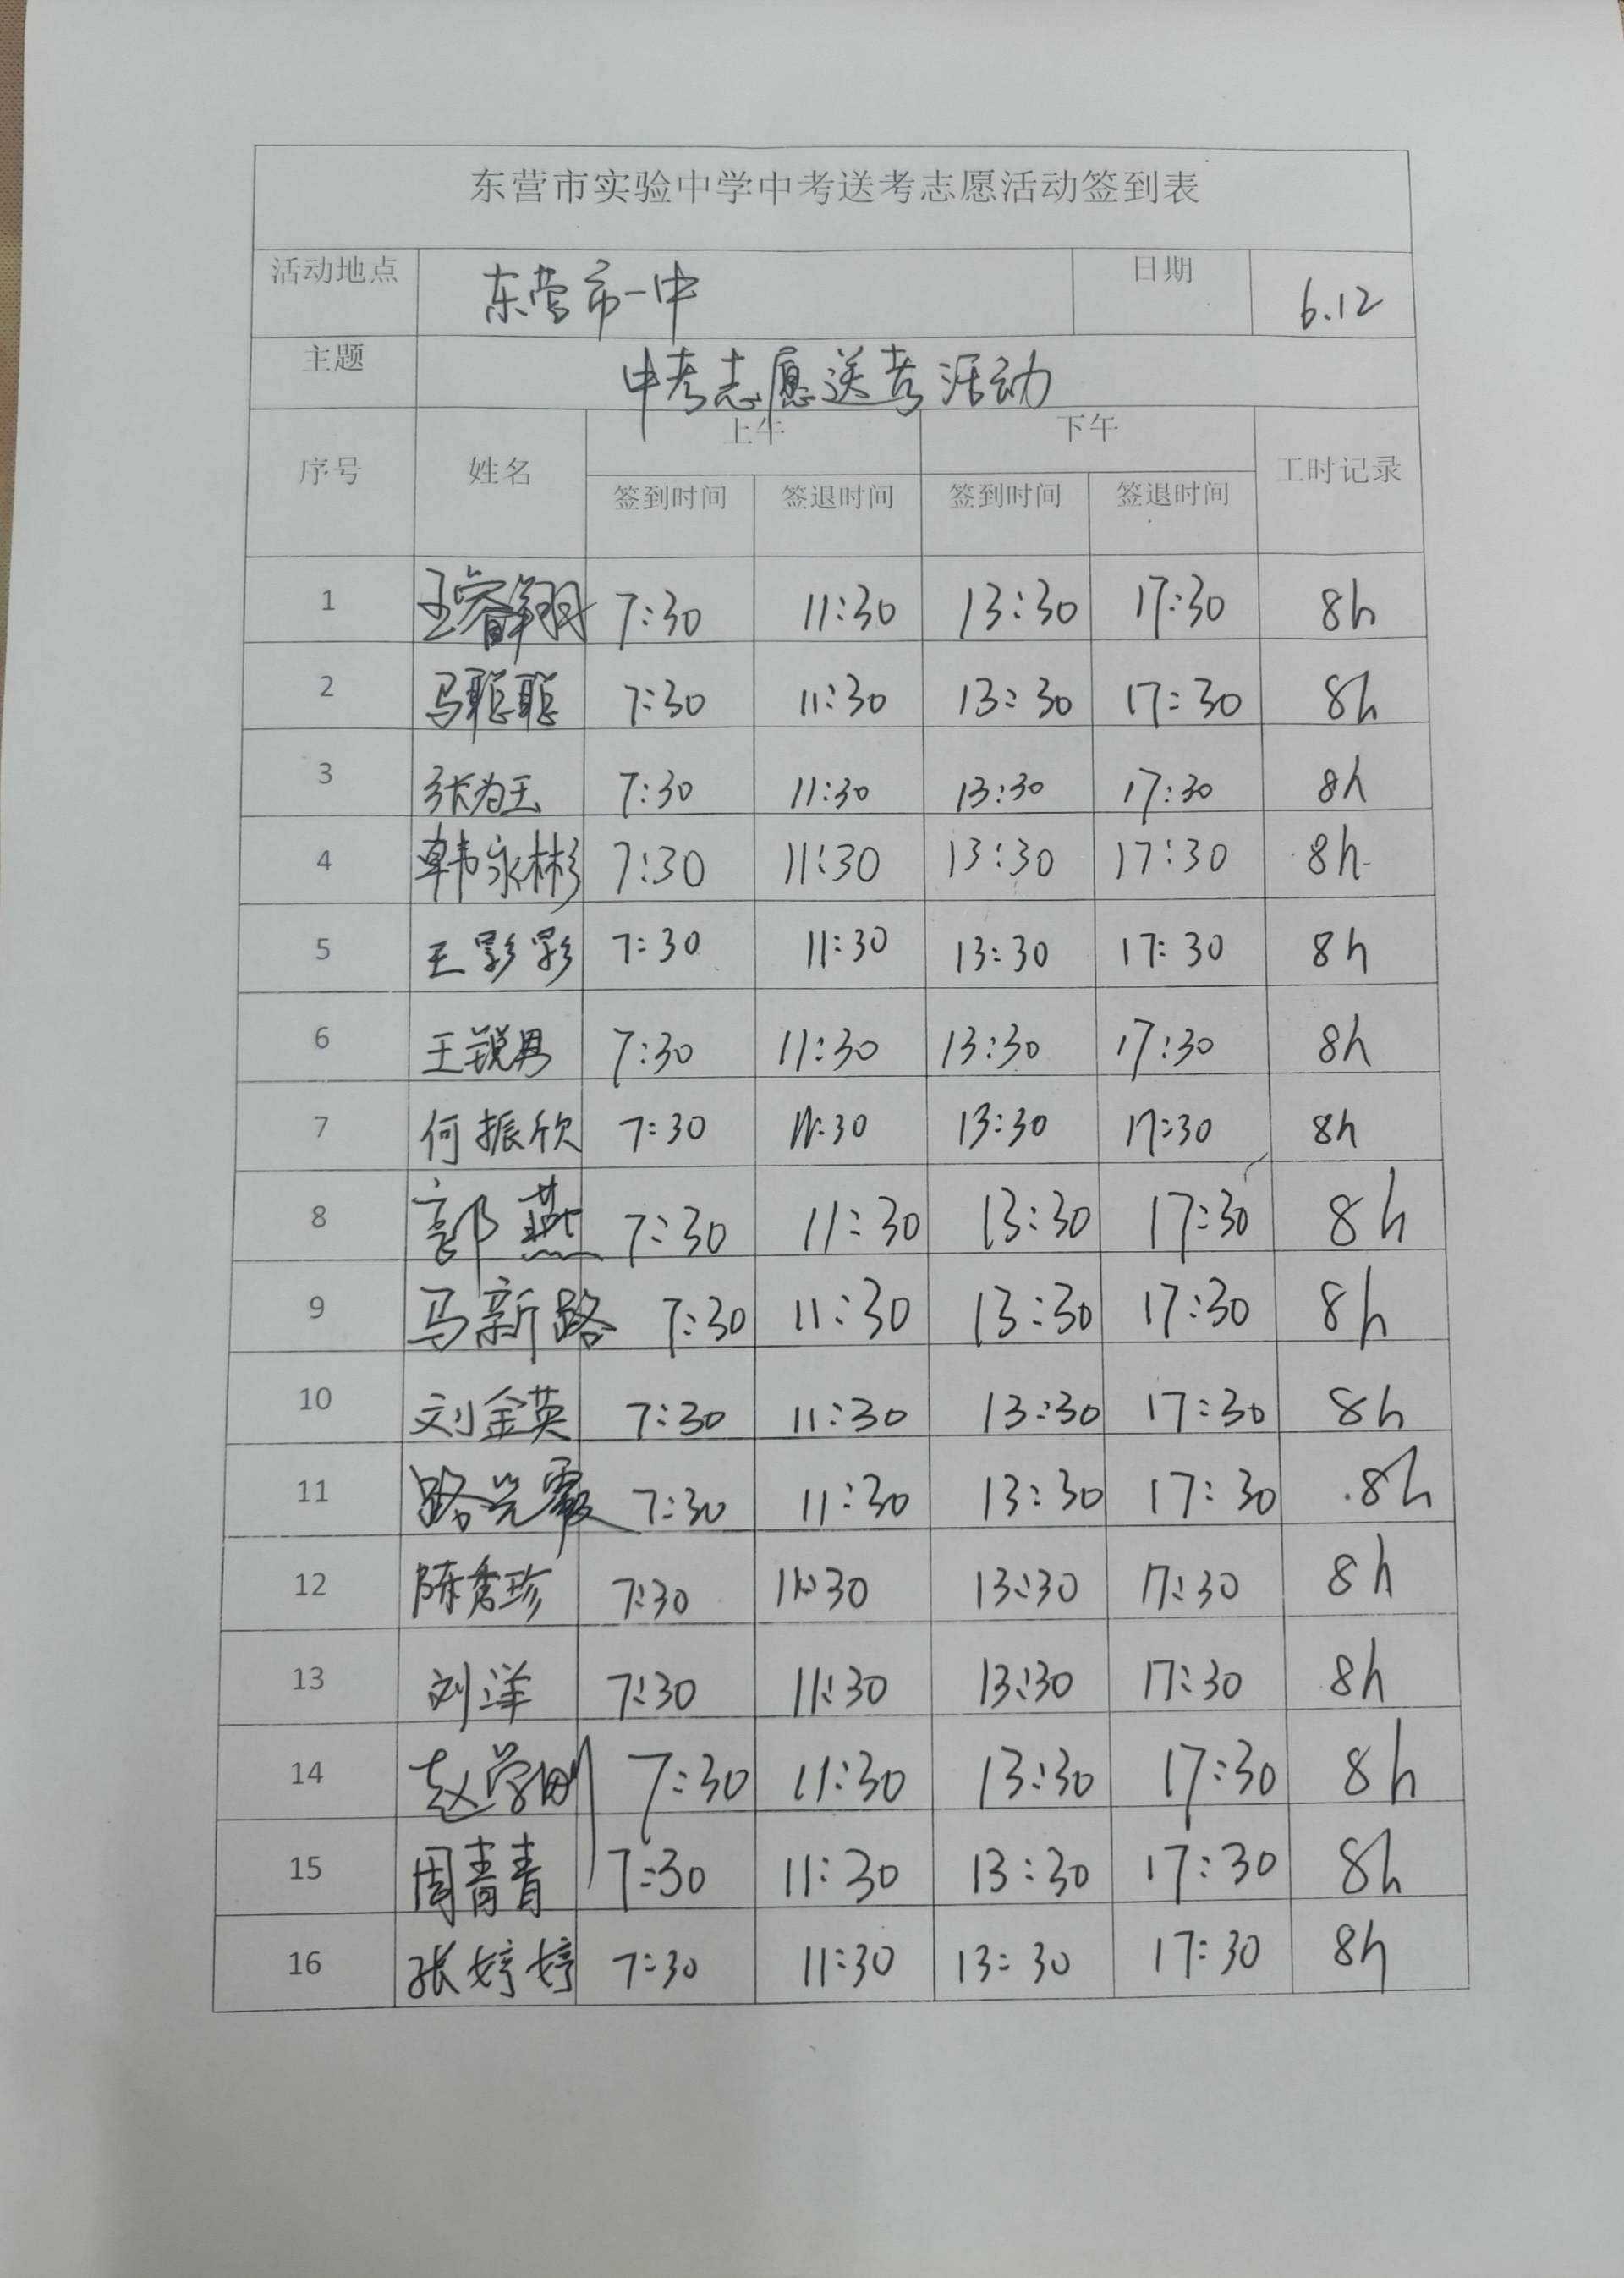 东营市实验中学中考送考志愿活动签到表
活动地点 东营市一中 日期 6.12
主题 中考志愿送考活动
序号 姓名 上午 下午 工时记录
签到时间 签退时间 签到时间 签退时间
1 王睿翔 7:30 11:30 13:30 17:30 8h
2 马聪聪 7:30 11:30 13:30 17:30 8h
3 张为玉 7:30 11:30 13:30 17:30 8h
4 韩永彬 7:30 11:30 13:30 17:30 8h
5 王影影 7:30 11:30 13:30 17:30 8h
6 王锐男 7:30 11:30 13:30 17:30 8h
7 何振欣 7:30 11:30 13:30 17:30 8h
8 郭燕 7:30 11:30 13:30 17:30 8h
9 马新路 7:30 11:30 13:30 17:30 8h
10 刘金英 7:30 11:30 13:30 17:30 8h
11 7:30 11:30 13:30 17:30 8h
12 陈秀珍 7:30 11:30 13:30 17:30 8h
13 刘洋 7:30 11:30 13:30 17:30 8h
14 7:30 11:30 13:30 17:30 8h
15 周青青 7:30 11:30 13:30 17:30 8h
16 张婷婷 7:30 11:30 13:30 17:30 8h